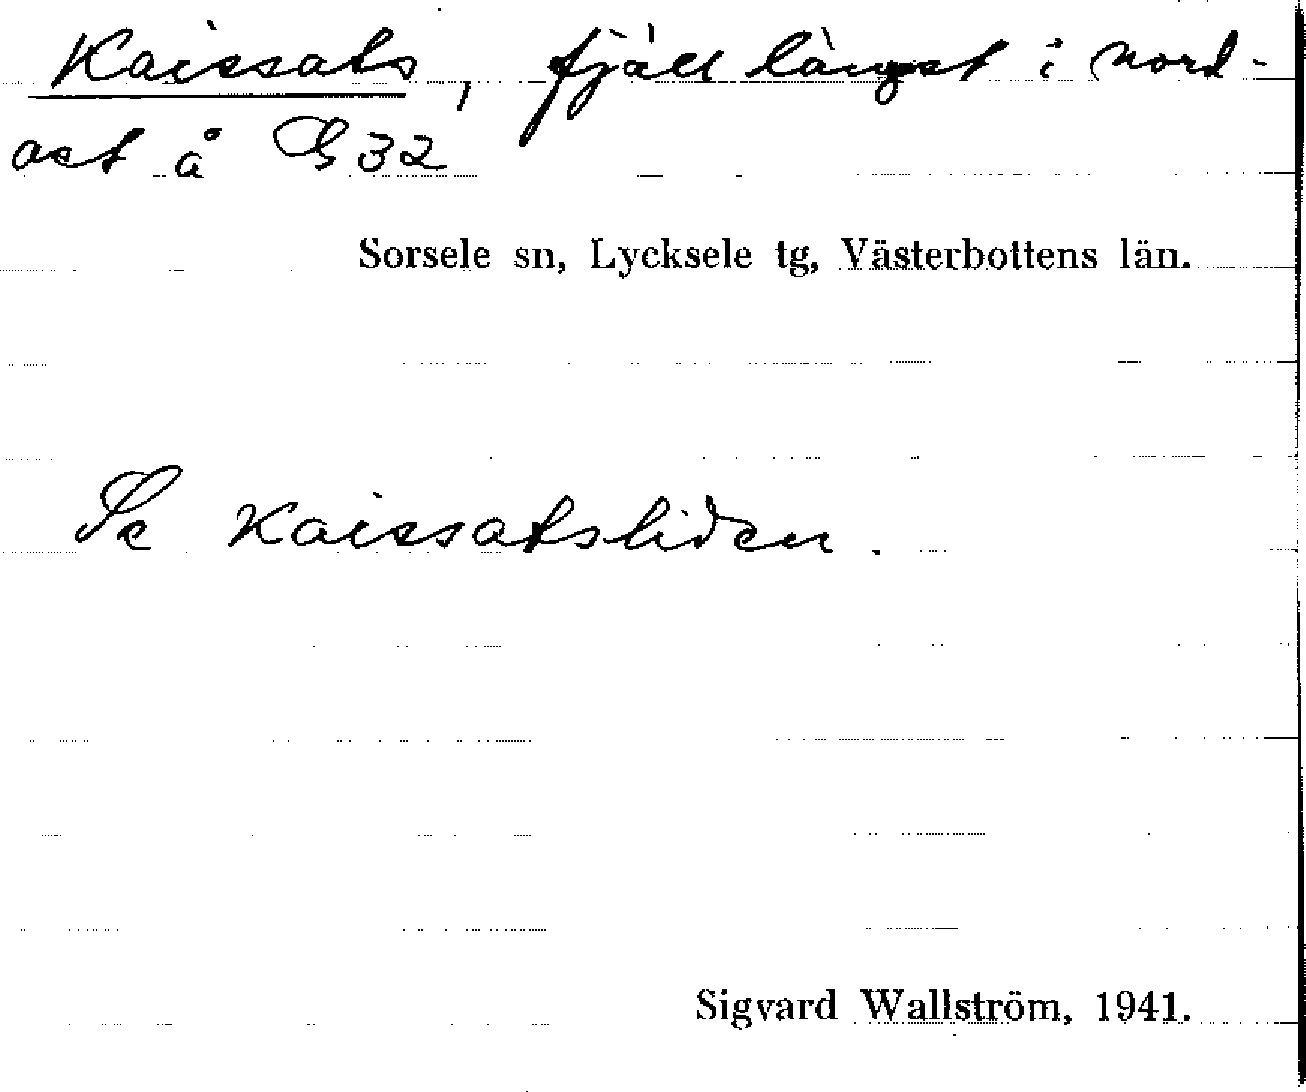 Kaissats, fjäll längst i nord-
ost å G 32
Sorsele sn, Lycksele tg, Västerbottens län.
Se Kaissatsliden.
Sigvard Wallström, 1941.